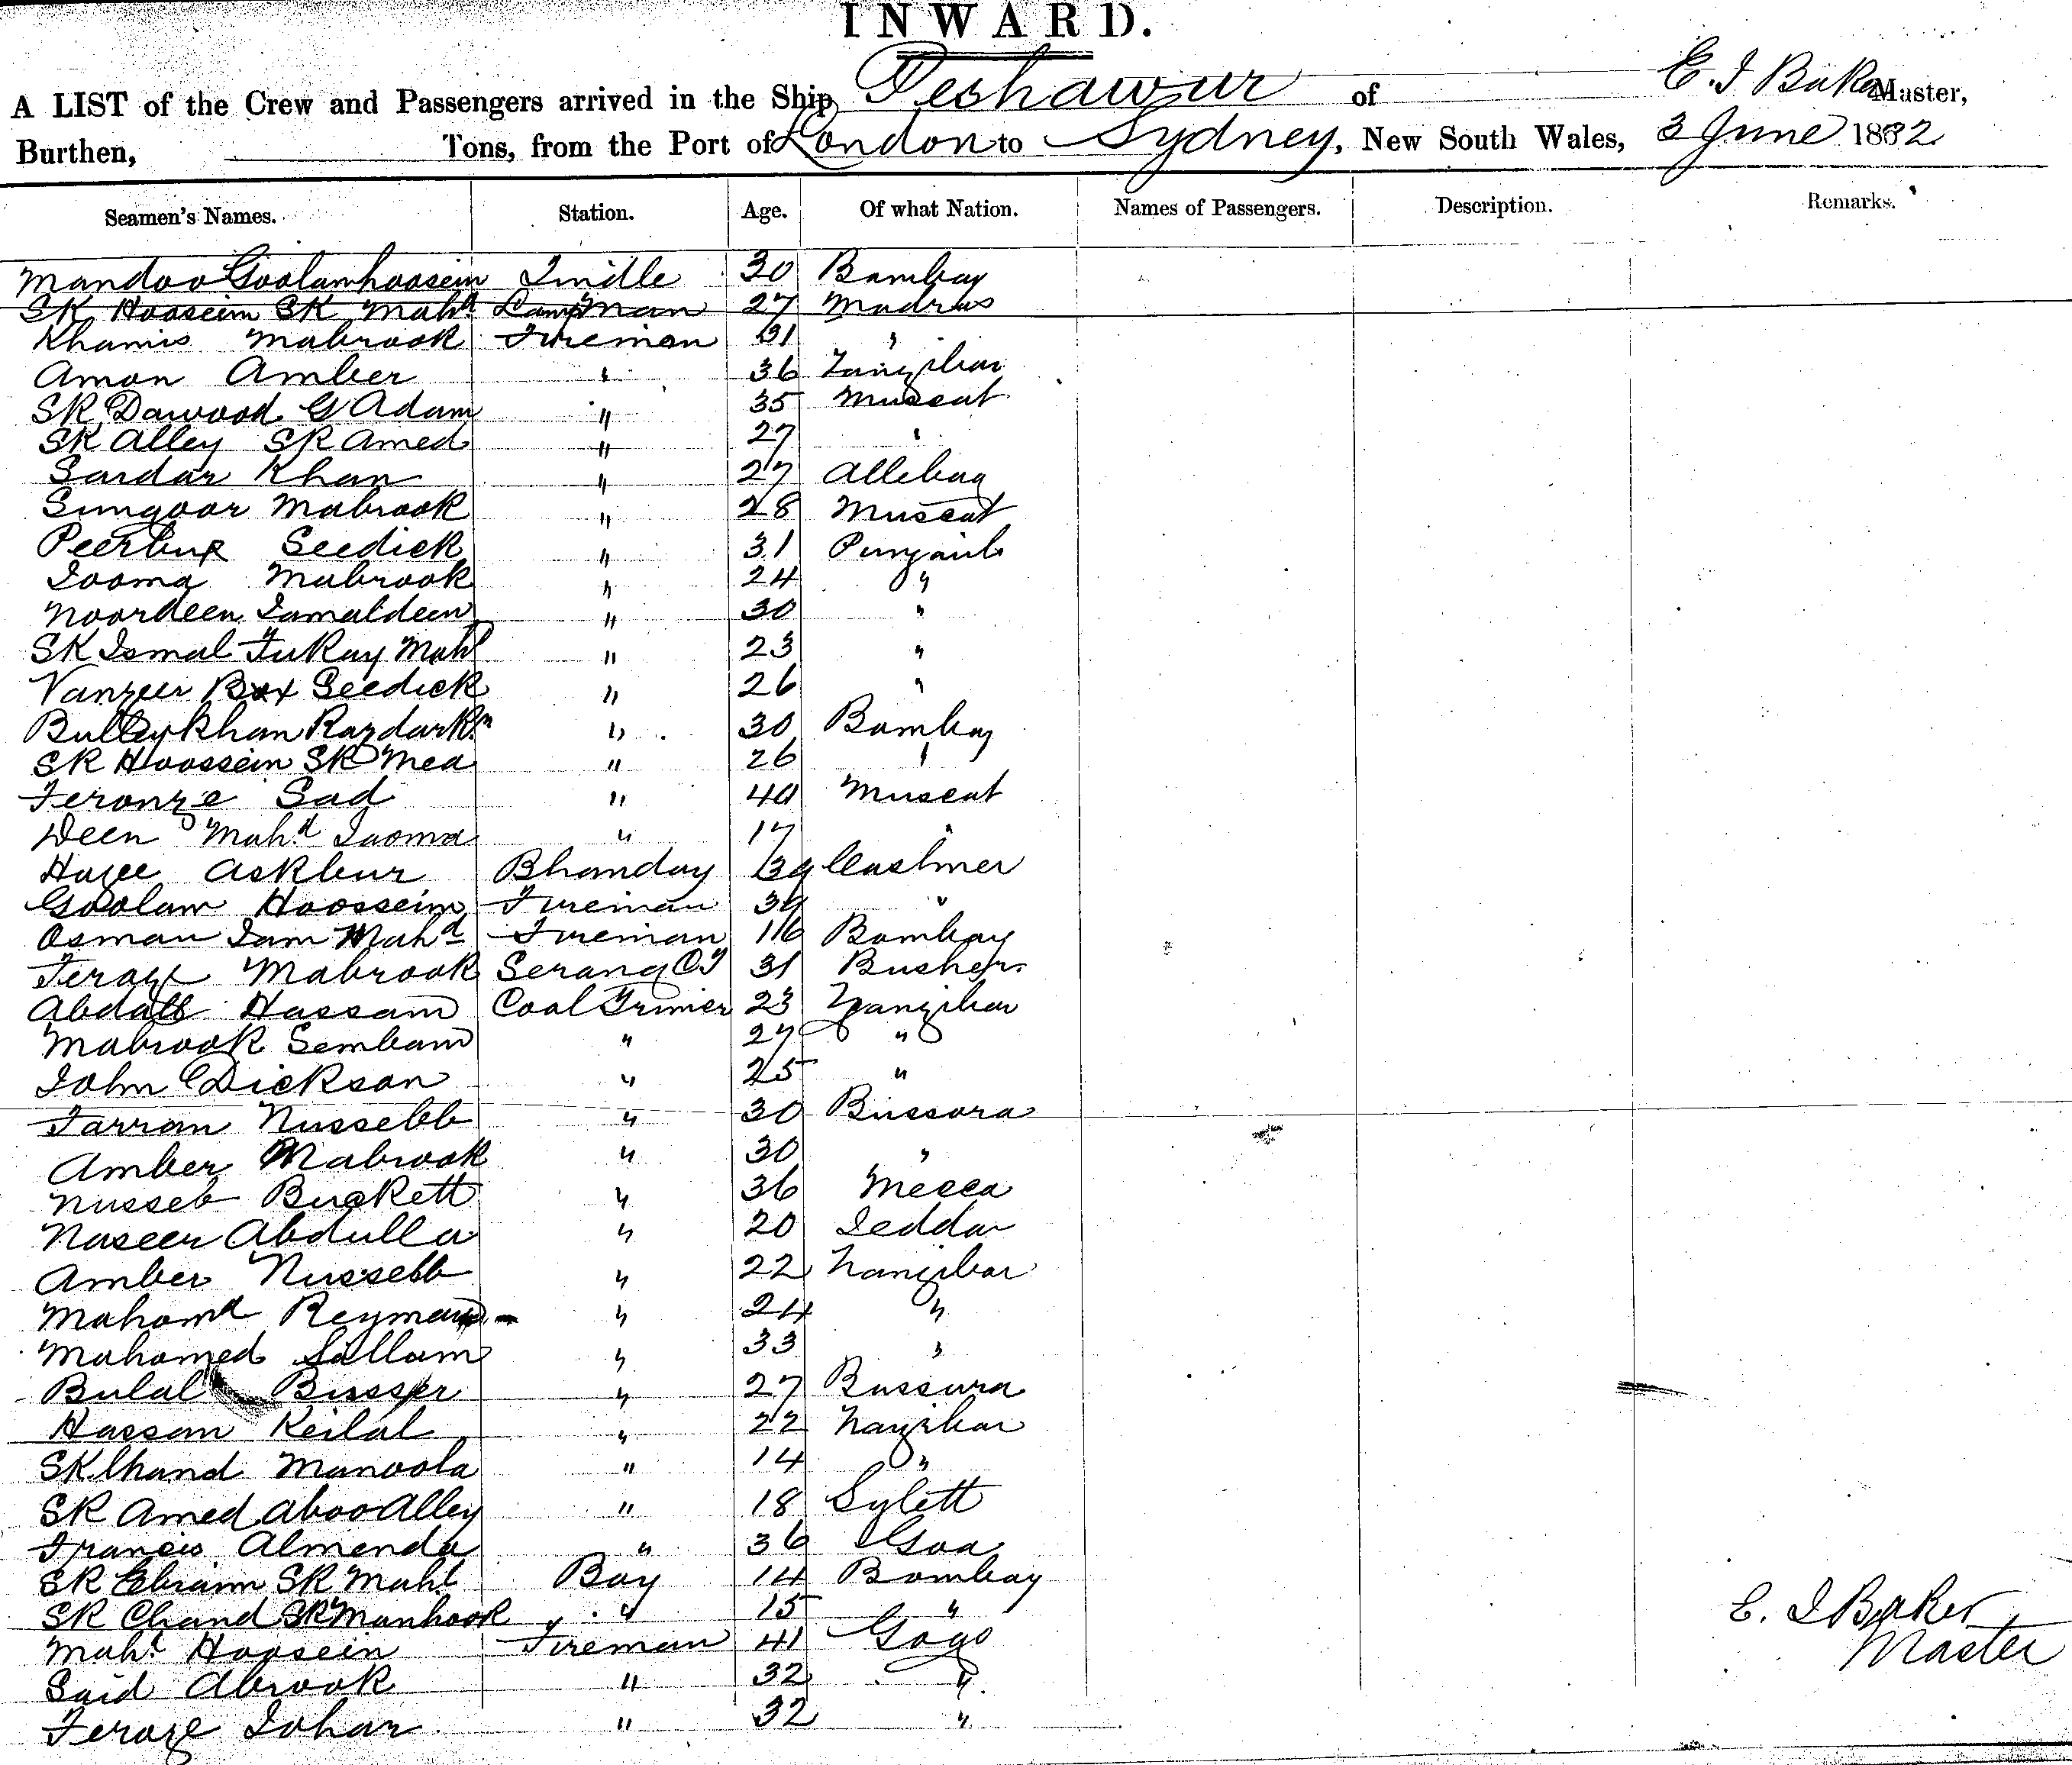 INWARD.
A LIST of the Crew and Passengers arrived in the Ship Peshawur of E. J Baker Master,
Burthen, Tons, from the Port of London to Sydney, New South Wales, 3 June 1882
Seamen's Names. Station. Age. Of what Nation. Names of Passengers. Description. Remarks.
Mandoo Goolamhoosein Tindle 30 Bombay
SK Hoosein SK Mahd Lampman 27 Madras
Khamis Mabrook Fireman 31 "
Amon Amber " 36 Zanzibar
SK Dawood G Adam " 35 Muscat
SK Alley SK Amed " 27 "
Sardar Khan " 27 Allebag
Sungoor Mabrook " 28 Muscat
Peerbux Seedick " 31 Punjaub
Jooma Mabrook " 24 "
Noordeen Jamaldeen " 30 "
SK Ismal FuKay Mahd " 23 "
Vanzeer Bux Seedick " 26 "
Bulleykhan Razdarkn " 30 Bombay
SK Hoossein SK Mea " 26 "
Feronze Sad " 40 Muscat
Deen Mahd Jooma " 17 "
Hajee Askbur Bhanday 39 Cashmer
Goolam Hoossein Fireman 34 "
Osman Jam Mahd Fireman 16 Bombay
Feroze Mabrook Serang CT 31 Busher
Abdalb Hassam Coal Trimer 23 Zanzibar
Mabrook Sembam " 27 "
John Dickson " 25 "
Farran Nussebb " 30 Bussora
Amber Mabrook " 30 "
Nusseb Buckett " 36 Mecca
Naseer Abdulla " 20 Jeddar
Amber Nussebb " 22 Zanzibar
Mahomd Reyman " 24 "
Mahomed Sallam " 33 "
Bulal Busser " 27 Bussura
Hassan Keilal " 22 Zanzibar
SK Chand Manoola " 14 "
SK Amed Aboo Alley " 18 Sylett
Francis Almenda " 36 Goa
SK Ebram SK Mahd Boy 14 Bombay
SK Chand SK Manhook " 15 "
Mahd Hoosein Fireman 41 Gogo
Said Abrook " 32 "
Feroze Johar " 32 "
E. J Baker
Master